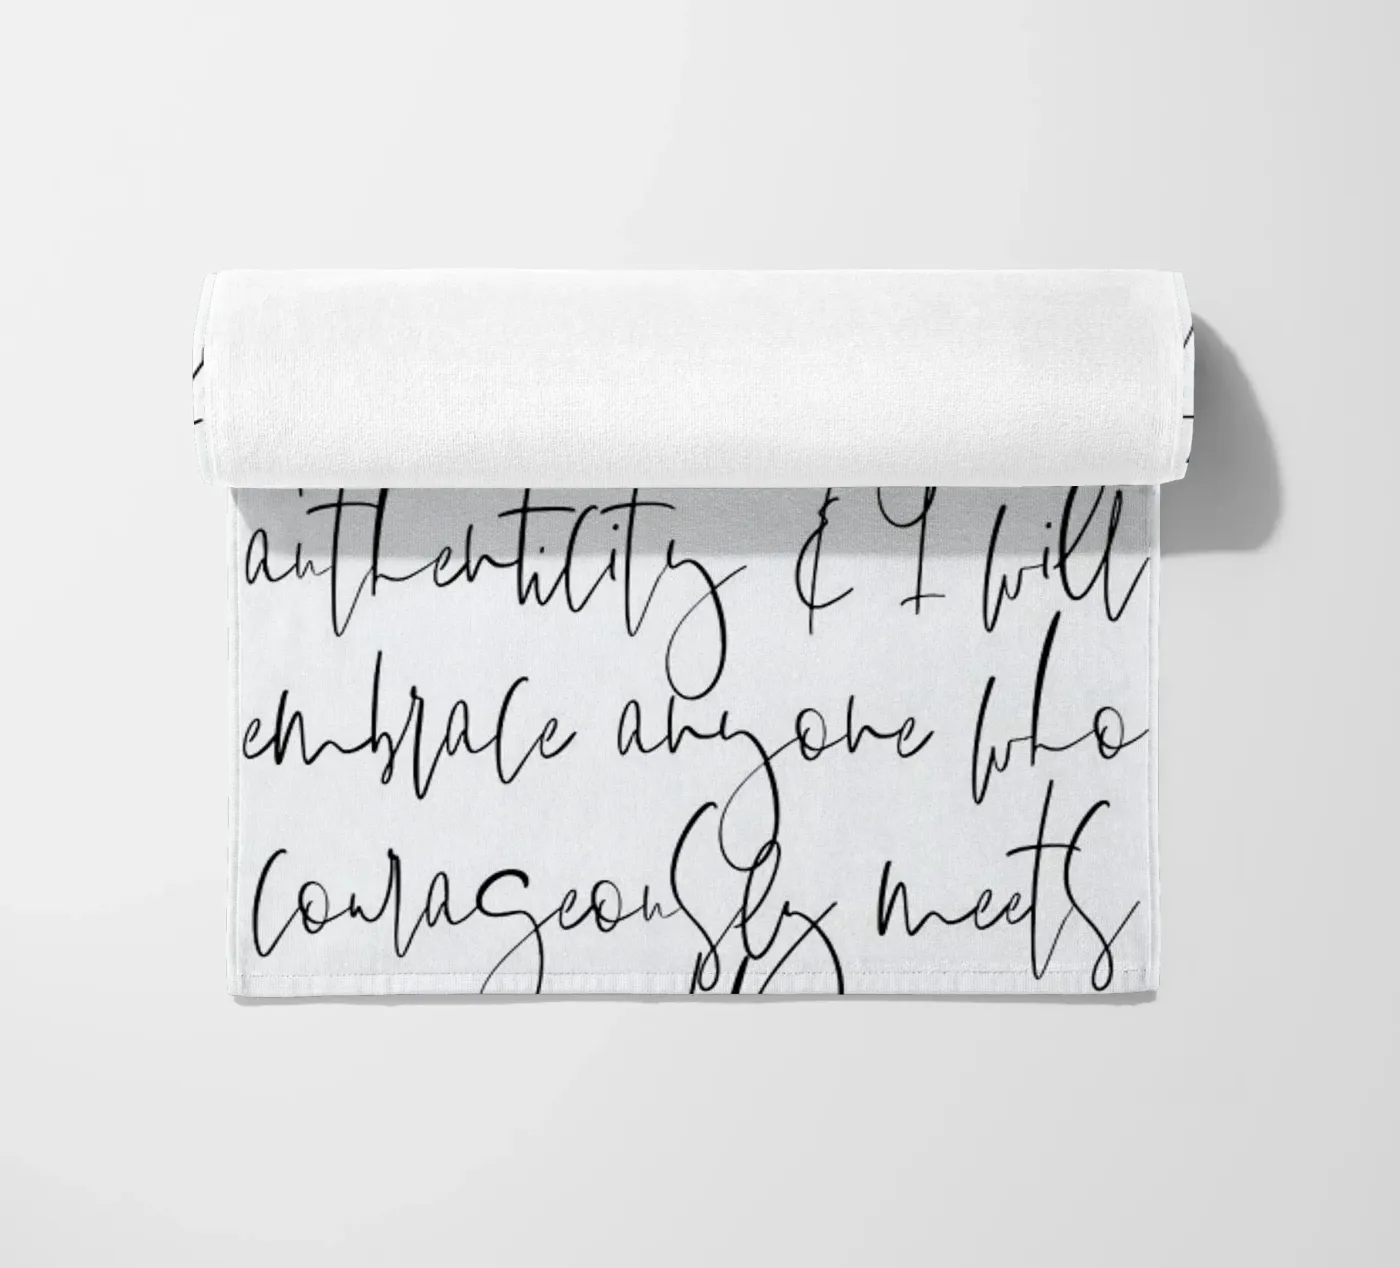 authenticity & I will
embrace anyone who
courageously meets